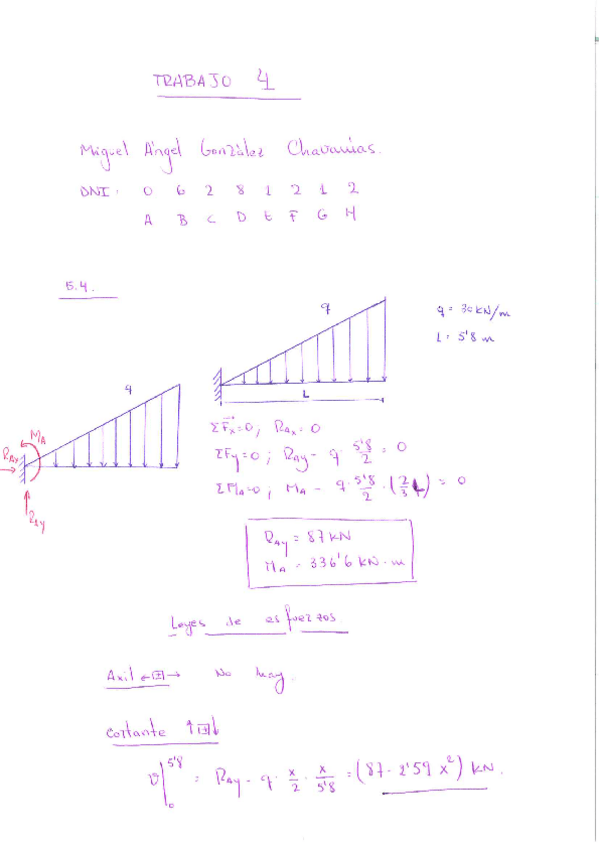 TRABAJO 4
Miguel Ángel González Chavanías.
DNI: 0 6 2 8 1 2 1 2
A B C D E F G H
5.4.
q
q = 30 kN/m
L = 5'8 m
L
q
M_A
R_Ax
R_Ay
ΣF_x=0; R_Ax = 0
ΣF_y=0; R_Ay - q · 5'8/2 = 0
ΣM_A=0; M_A - q · 5'8/2 · (2/3 L) = 0
R_Ay = 87 kN
M_A = 336'6 kN·m
Leyes de esfuerzos
Axil ←⊞→ No hay.
Cortante ↑⊞↓
V|₀^5'8 = R_Ay - q · x/2 · x/5'8 = (87 - 2'59 x²) kN.